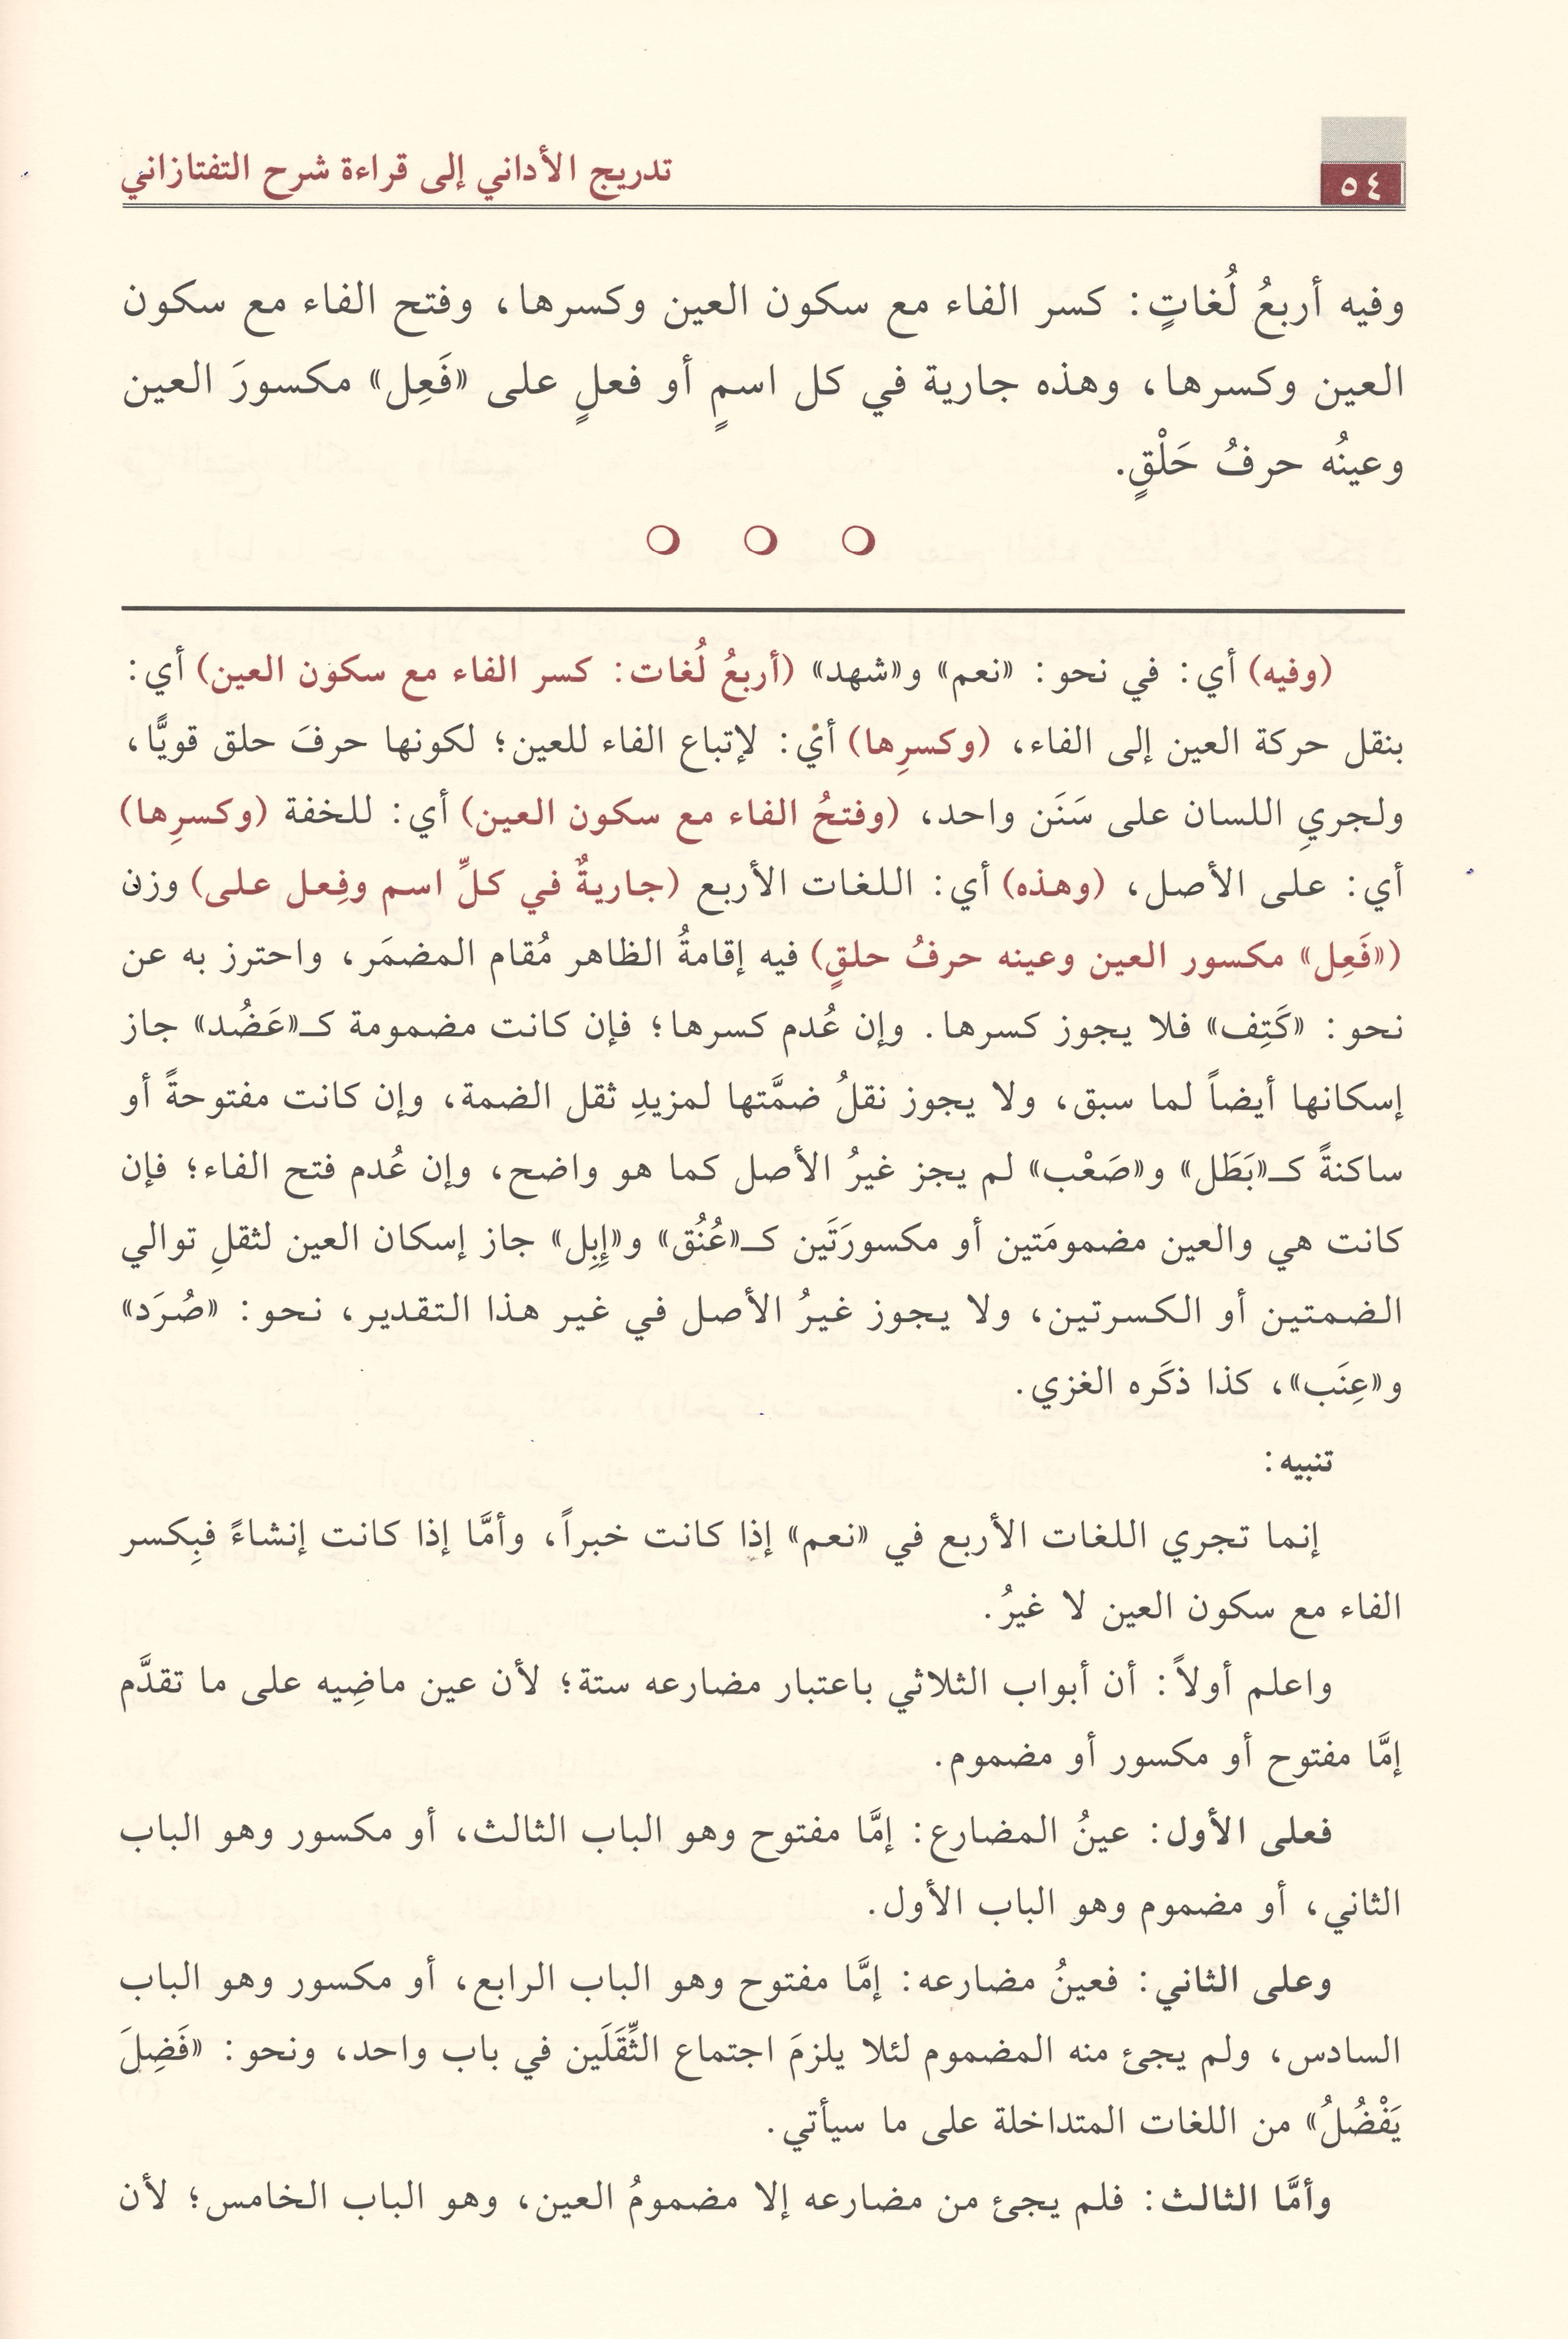 ٥٤
تدريج الأداني إلى قراءة شرح التفتازاني
وفيه أربعُ لُغاتٍ: كسر الفاء مع سكون العين وكسرها، وفتح الفاء مع سكون
العين وكسرها، وهذه جارية في كل اسمٍ أو فعلٍ على «فَعِل» مكسورَ العين
وعينُه حرفُ حَلْقٍ.
(وفيه) أي: في نحو: «نعم» و«شهد» (أربعُ لُغات: كسر الفاء مع سكون العين) أي:
بنقل حركة العين إلى الفاء، (وكسرِها) أيْ: لإتباع الفاء للعين؛ لكونها حرفَ حلق قويًّا،
ولجريِ اللسان على سَنَن واحد، (وفتحُ الفاء مع سكون العين) أي: للخفة (وكسرِها)
أي: على الأصل، (وهذه) أي: اللغات الأربع (جاريةٌ في كلِّ اسم وفِعل على) وزن
(«فَعِل» مكسور العين وعينه حرفُ حلقٍ) فيه إقامةُ الظاهر مُقام المضمَر، واحترز به عن
نحو: «كَتِف» فلا يجوز كسرها. وإن عُدم كسرها؛ فإن كانت مضمومة كـ«عَضُد» جاز
إسكانها أيضاً لما سبق، ولا يجوز نقلُ ضمَّتها لمزيدِ ثقل الضمة، وإن كانت مفتوحةً أو
ساكنةً كـ«بَطَل» و«صَعْب» لم يجز غيرُ الأصل كما هو واضح، وإن عُدم فتح الفاء؛ فإن
كانت هي والعين مضمومَتين أو مكسورَتَين كـ«عُنُق» و«إِبِل» جاز إسكان العين لثقلِ توالي
الضمتين أو الكسرتين، ولا يجوز غيرُ الأصل في غير هذا التقدير، نحو: «صُرَد»
و«عِنَب»، كذا ذكَره الغزي.
تنبيه:
إنما تجري اللغات الأربع في «نعم» إذا كانت خبراً، وأمَّا إذا كانت إنشاءً فبِكسر
الفاء مع سكون العين لا غيرُ.
واعلم أولاً: أن أبواب الثلاثي باعتبار مضارعه ستة؛ لأن عين ماضِيه على ما تقدَّم
إمَّا مفتوح أو مكسور أو مضموم.
فعلى الأول: عينُ المضارع: إمَّا مفتوح وهو الباب الثالث، أو مكسور وهو الباب
الثاني، أو مضموم وهو الباب الأول.
وعلى الثاني: فعينُ مضارعه: إمَّا مفتوح وهو الباب الرابع، أو مكسور وهو الباب
السادس، ولم يجئ منه المضموم لئلا يلزمَ اجتماع الثِّقَلَين في باب واحد، ونحو: «فَضِلَ
يَفْضُلُ» من اللغات المتداخلة على ما سيأتي.
وأمَّا الثالث: فلم يجئ من مضارعه إلا مضمومُ العين، وهو الباب الخامس؛ لأن